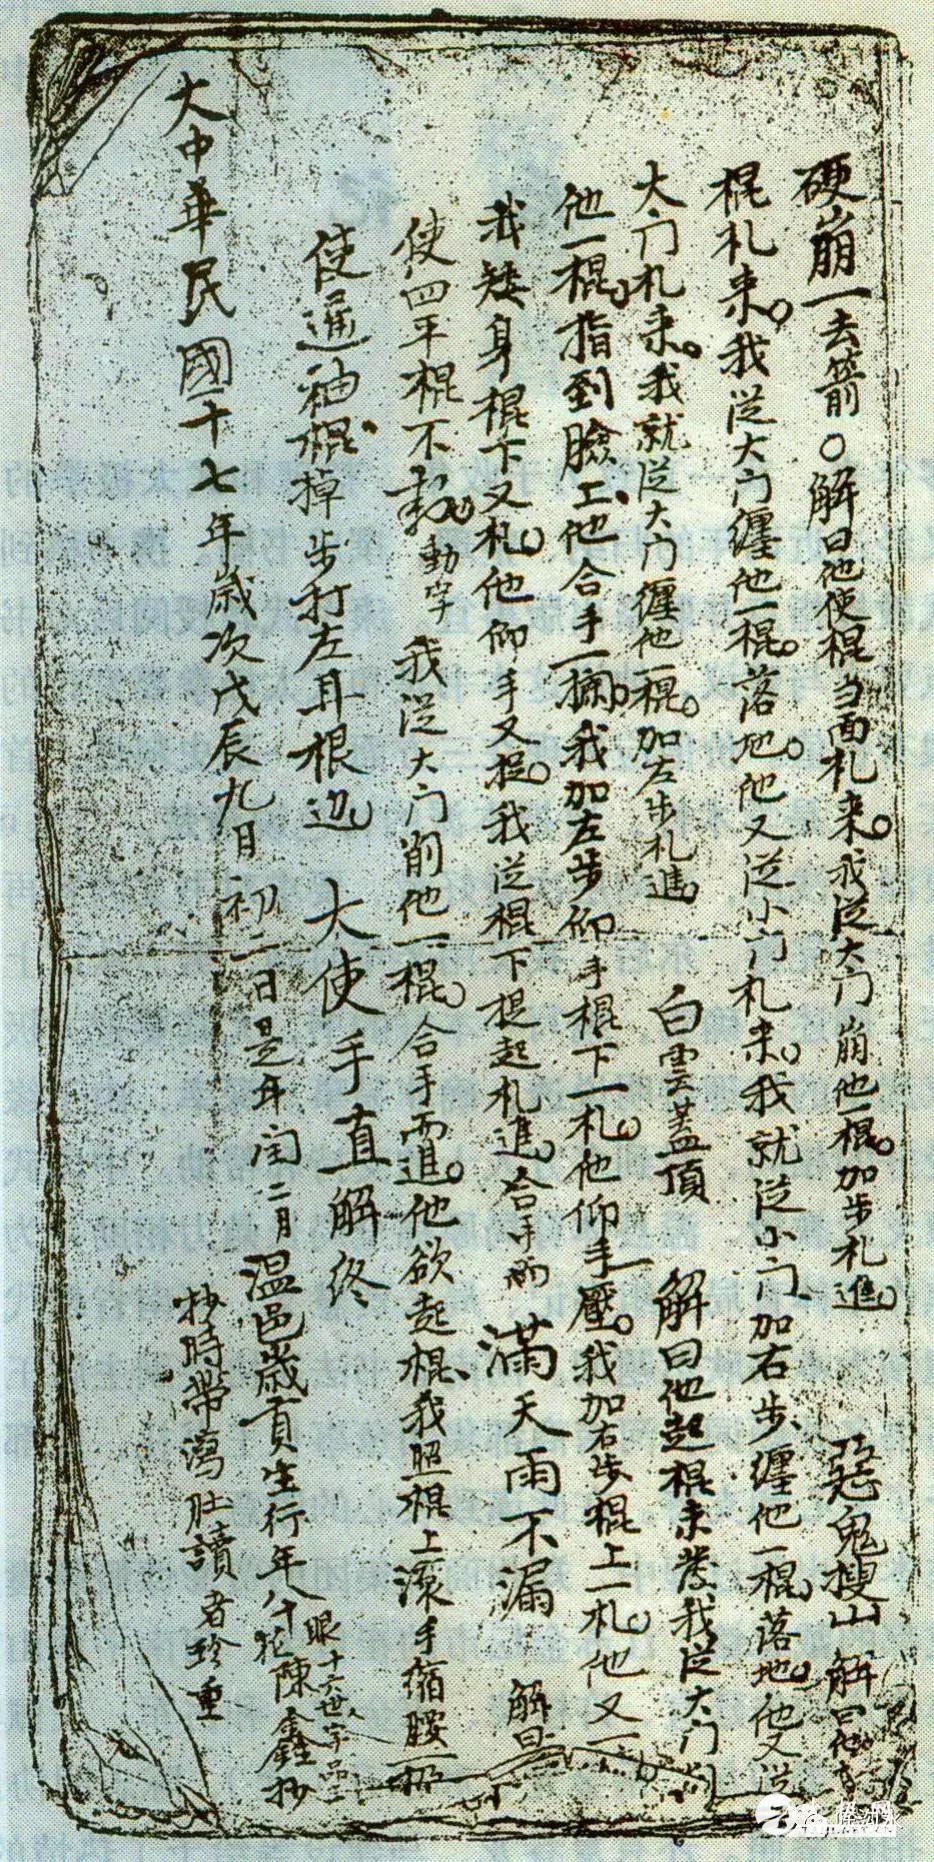 硬崩一去箭○解曰他使棍当面札来我從大门崩他一棍加步札進 惡鬼搜山 解曰他
棍札来我從大门纏他一棍落地他又從小门札来我就從小门加右步纏他一棍落地他又從
大门札来我就從大门纏他一棍加左步札進 白雲蓋頂 解曰他起棍来 我從大门
他一棍指到臉上他合手一攔我加左步仰手棍下一札他仰手一壓我加右步棍上一札他又一
我矮身棍下又札他仰手又捉我從棍下提起札進合手而 滿天雨不漏 解曰
使四平棍不動 動字 我從大门削他一棍合手而進他欲起棍我照棍上滚手縮腰一
使通袖棍掉步打左耳根边 大使手直解终
大中華民國十七年歲次戊辰九月初二日是年闰二月 温邑歲貢生行年八十 眼花 十六世 字品三 陳鑫抄
抄時带瀉肚讀者珍重